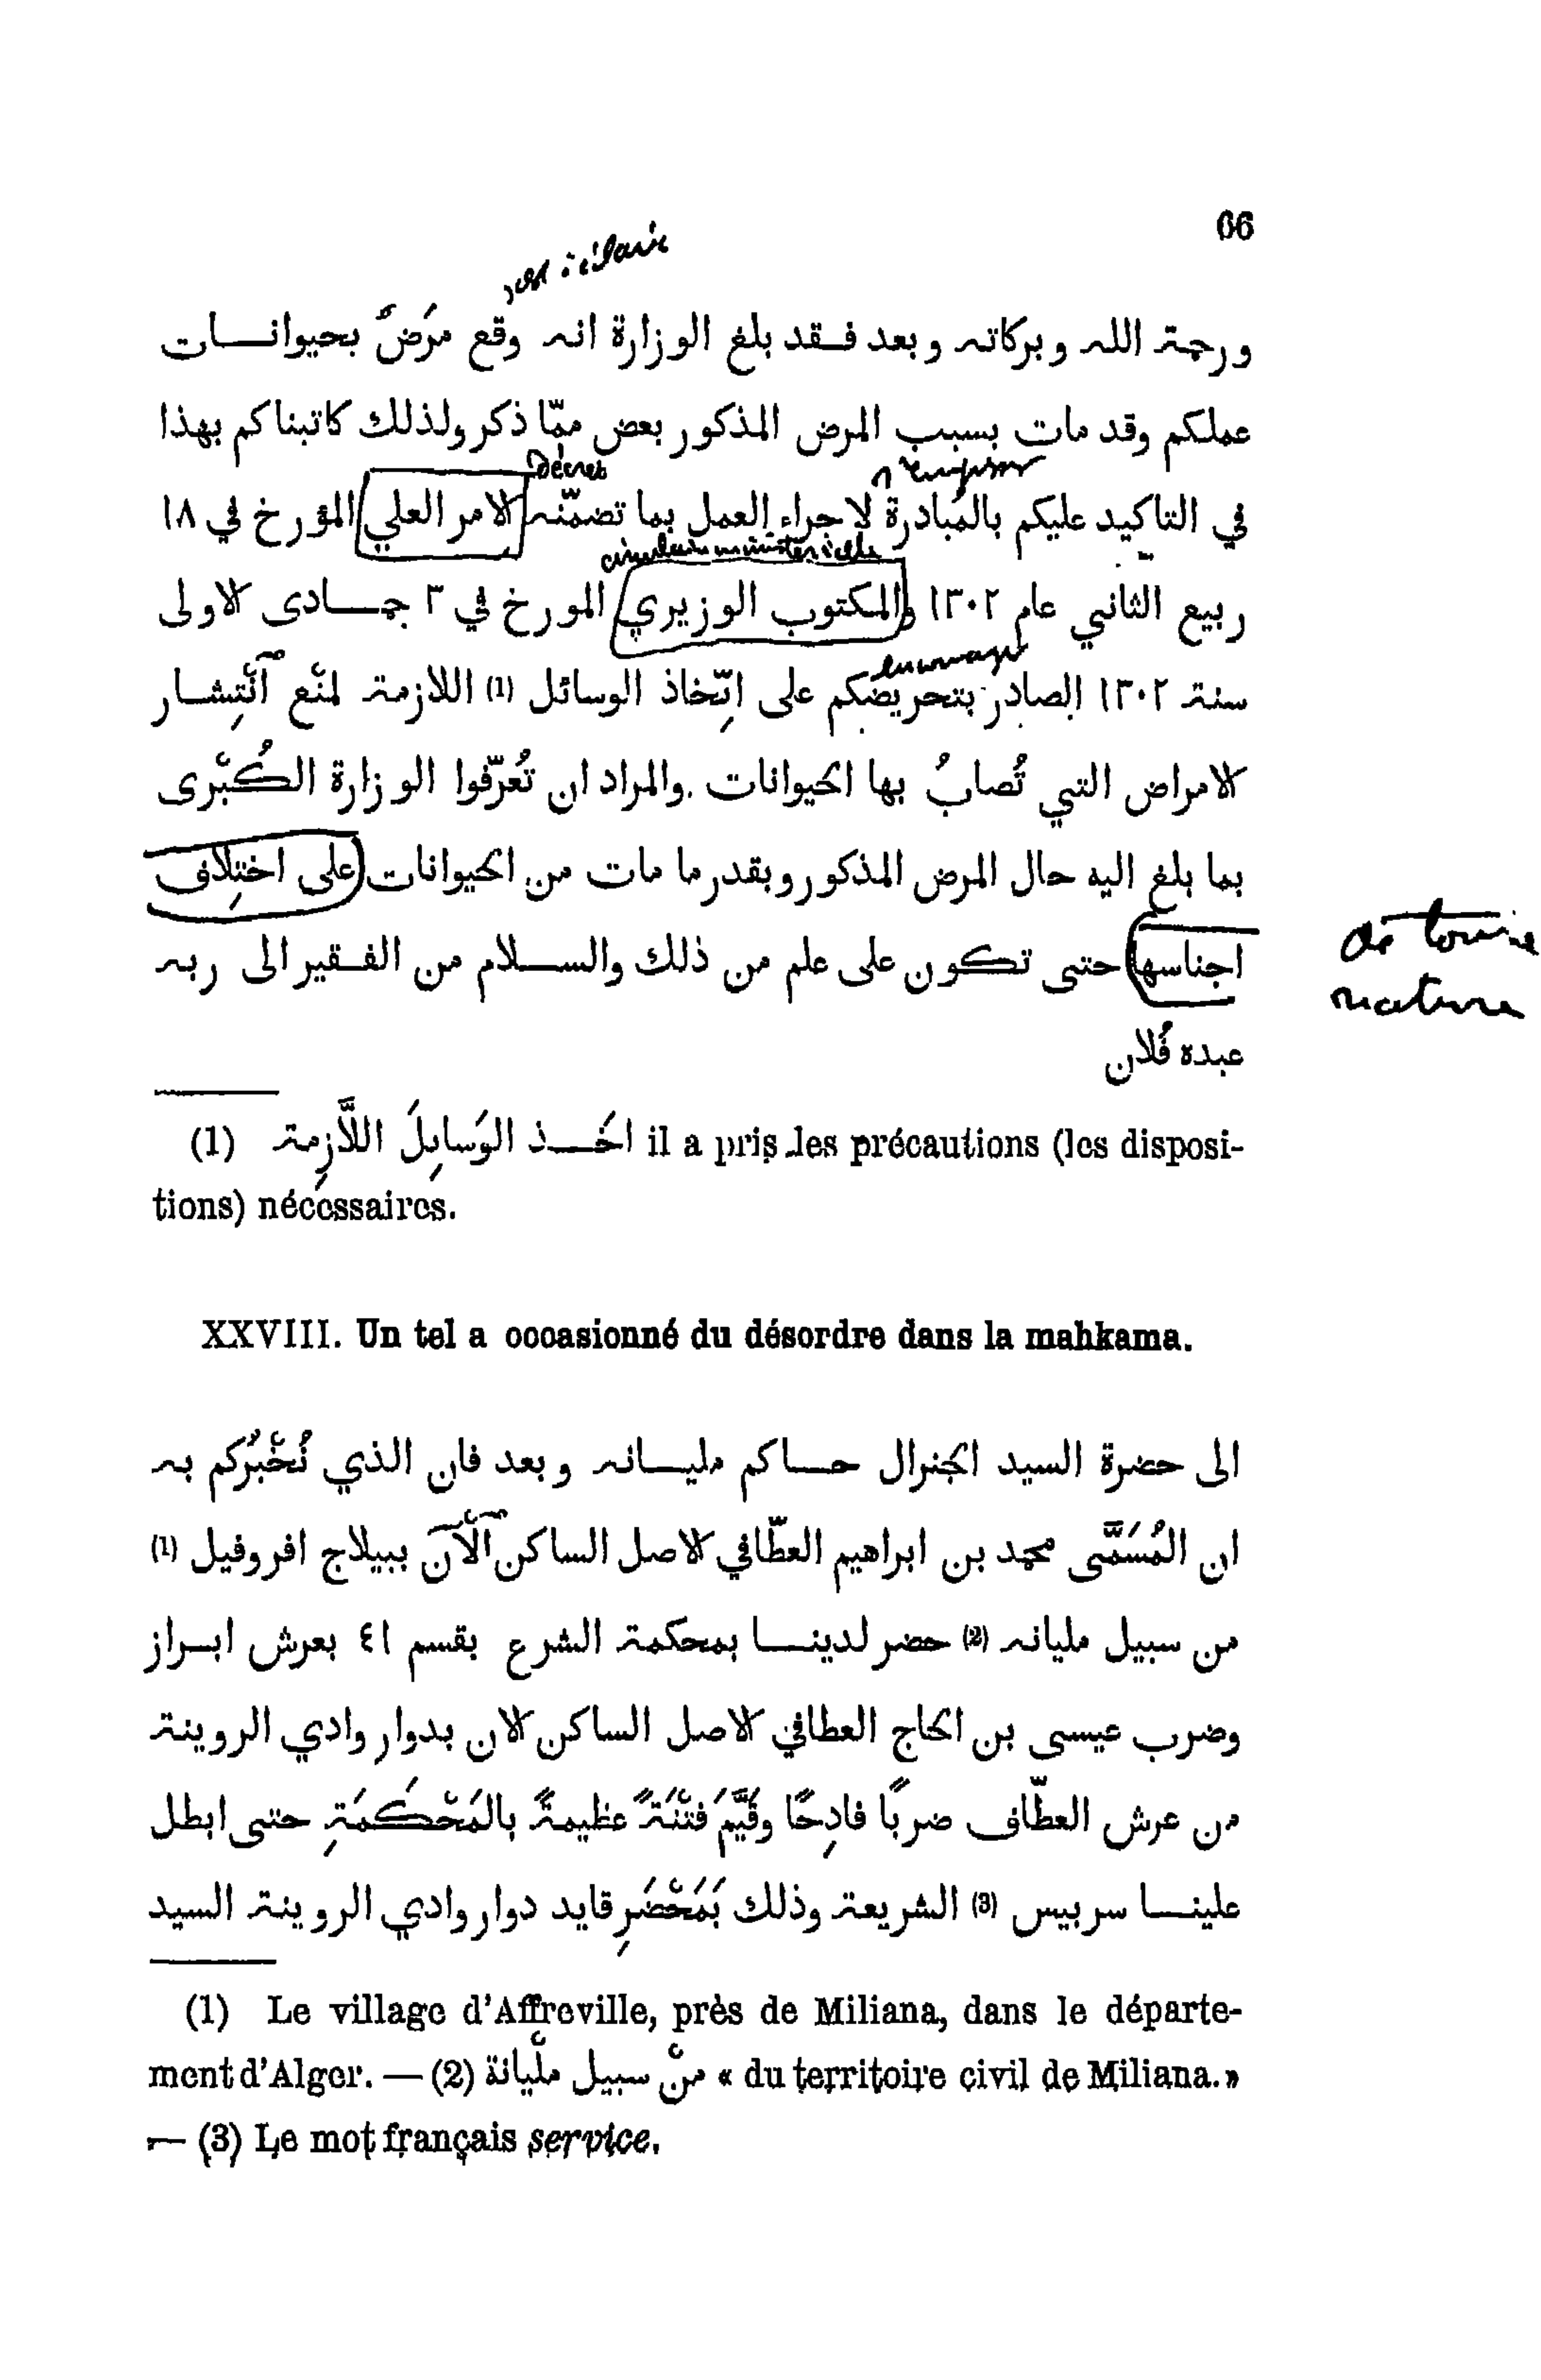 66
ورحمة الله وبركاته وبعد فقد بلغ الوزارة انه وقع مَرَضٌ بحيوانات
عملكم وقد مات بسبب المرض المذكور بعض ممّا ذكر ولذلك كاتبناكم بهذا
Décret
في التاكيد عليكم بالمُبادرة لاجراء العمل بما تضمّنه الامر العلي المؤرخ في ١٨
circulaire ministérielle
ربيع الثاني عام ١٣٠٢ والمكتوب الوزيري المورخ في ٣ جمادى الاولى
سنة ١٣٠٢ الصادر بتحريضكم على اتِّخاذ الوسائل (1) اللازمة لمنْع آنْتِشار
الامراض التي تُصابُ بها الحيوانات. والمراد ان تُعرّفوا الوزارة الكُبْرى
بما بلغ اليه حال المرض المذكور وبقدر ما مات من الحيوانات على اختِلاف
de toute
اجناسها حتى تكون على علم من ذلك والسلام من الفقير الى ربه
nature
عبده فُلان
(1) اتَّخَذ الوَسايِلَ اللاَّزِمة il a pris les précautions (les disposi-
tions) nécessaires.
XXVIII. Un tel a occasionné du désordre dans la mahkama.
الى حضرة السيد الجنرال حاكم مليانه وبعد فان الذي نُخْبُركم به
ان المُسَمَّى محمد بن ابراهيم العطّافي الاصل الساكن آلْآن ببيلاج افروفيل (1)
من سبيل مليانه (2) حضر لدينا بمحكمة الشرع بقسم ٤١ بعرش ابراز
وضرب عيسى بن الحاج العطافي الاصل الساكن الان بدوار وادي الروينة
من عرش العطّاف ضربًا فادِحًا وقَيَّمَ فتْنَةً عظيمةً بالمَحْكَمَةِ حتى ابطل
علينا سربيس (3) الشريعة وذلك بَمَحْضَرِ قايد دوار وادي الروينة السيد
(1) Le village d'Affreville, près de Miliana, dans le départe-
ment d'Alger. — (2) منْ سبيل ملْيانة « du territoire civil de Miliana. »
— (3) Le mot français service.